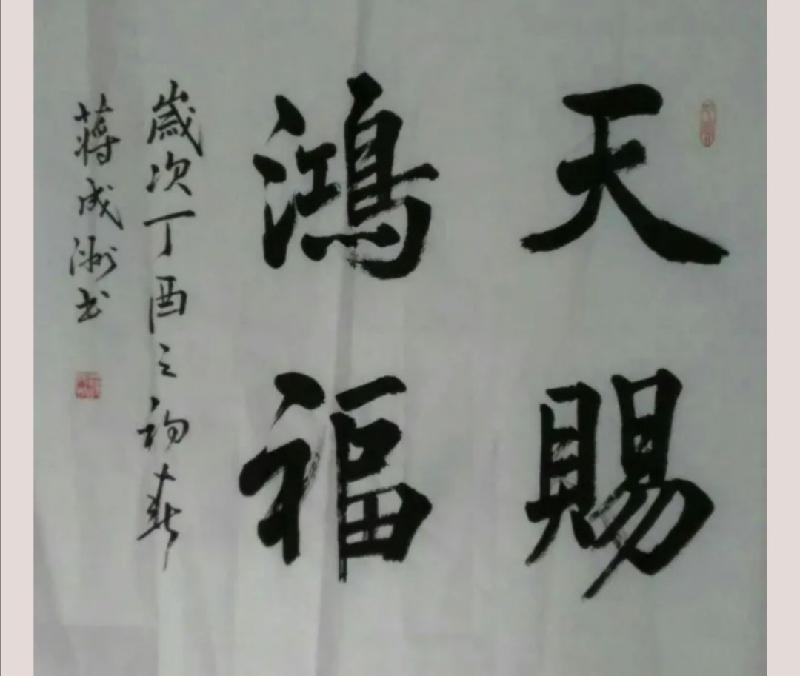 天賜
鴻福
歲次丁酉之初春
蔣成洲书